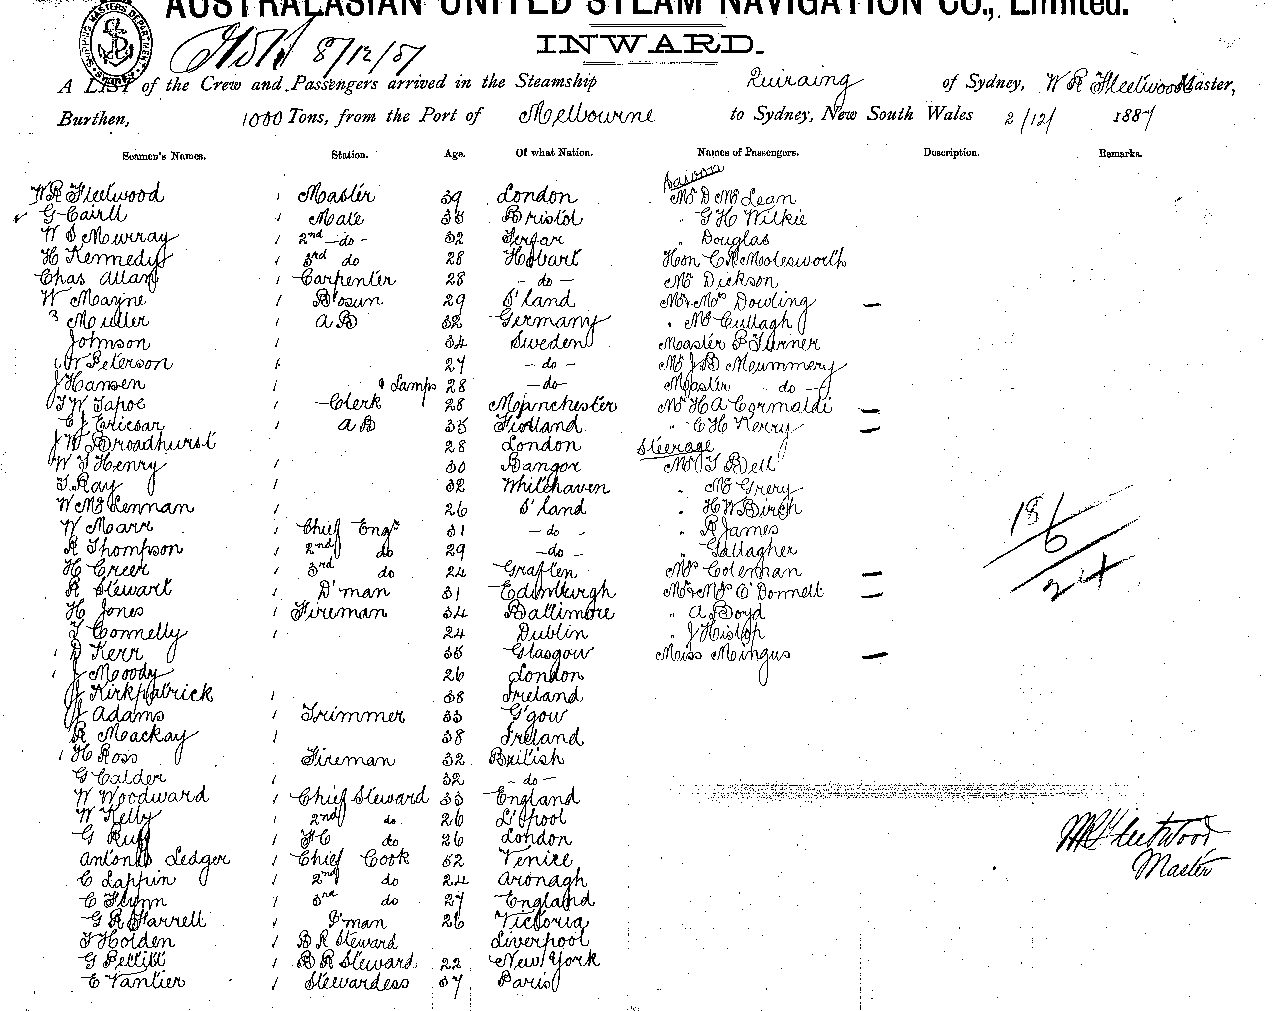 AUSTRALASIAN UNITED STEAM NAVIGATION CO., Limited.
8/12/87
INWARD.
A LIST of the Crew and Passengers arrived in the Steamship Quiraing of Sydney, W R Fleetwood Master,
Burthen, 1000 Tons, from the Port of Melbourne to Sydney, New South Wales 2/12/ 1887
Seamen's Names. Station. Age. Of what Nation. Names of Passengers. Description. Remarks.
Saloon
W R Fleetwood 1 Master 39 London Mr D McLean
G Cairll 1 Mate 35 Bristol " G H Wilkie
W S Murray 1 2nd - do - 32 Forfar " Douglas
H Kennedy 1 3rd do 28 Hobart Hon C Molesworth
Chas Allan 1 Carpenter 28 - do - Mr Dickson
W Mayne 1 Bosun 29 S'land Mr & Mrs Dowling -
Muller 1 A B 32 Germany " McCullagh
Johnson 1 34 Sweden Master P Turner
W Peterson 1 27 - do - Mr J B Mummery
J Hansen & Lamps 28 - do - Master do -
T W 1 Clerk 28 Manchester Mr H A -
1 A B 35 " C H Kerry -
J W Broadhurst 28 London Steerage
W S Henry 1 30 Bangor Mr T Bell
T Ray 1 32 Whitehaven " McGrery
W McLennan 1 26 S'land " H W Birch
W Marr 1 Chief Engr 31 - do - " R James
R Thompson 1 2nd do 29 - do - " Gallagher
H Creer 1 3rd do 24 Grafton Mrs Coleman -
R Stewart 1 D'man 31 Edinburgh Mr & Mrs O'Donnell -
H Jones 1 Fireman 34 Baltimore " A Boyd
T Connelly 1 24 Dublin " J Hislop
D Kerr 35 Glasgow Miss Mingus -
J Moody 26 London
J Kirkpatrick 1 38 Ireland
J Adams 1 Trimmer 33 G'gow
R Mackay 1 38 Ireland
H Ross Fireman 32 British
G Calder 1 32 - do -
W Woodward 1 Chief Steward 33 England
W Kelly 1 2nd do 26 L'pool
G Ruff 1 FC do 26 London
Antonio Ledger 1 Chief Cook 52 Venice
C Lappin 1 2nd do 24
C Flynn 1 3rd do 27 England
G R Farrell 1 P'man 26 Victoria
T Holden 1 B R Steward Liverpool
G Pettitt 1 B R Steward 22 New York
E Vantier 1 Stewardess 37 Paris
18/
6
24
W R Fleetwood
Master